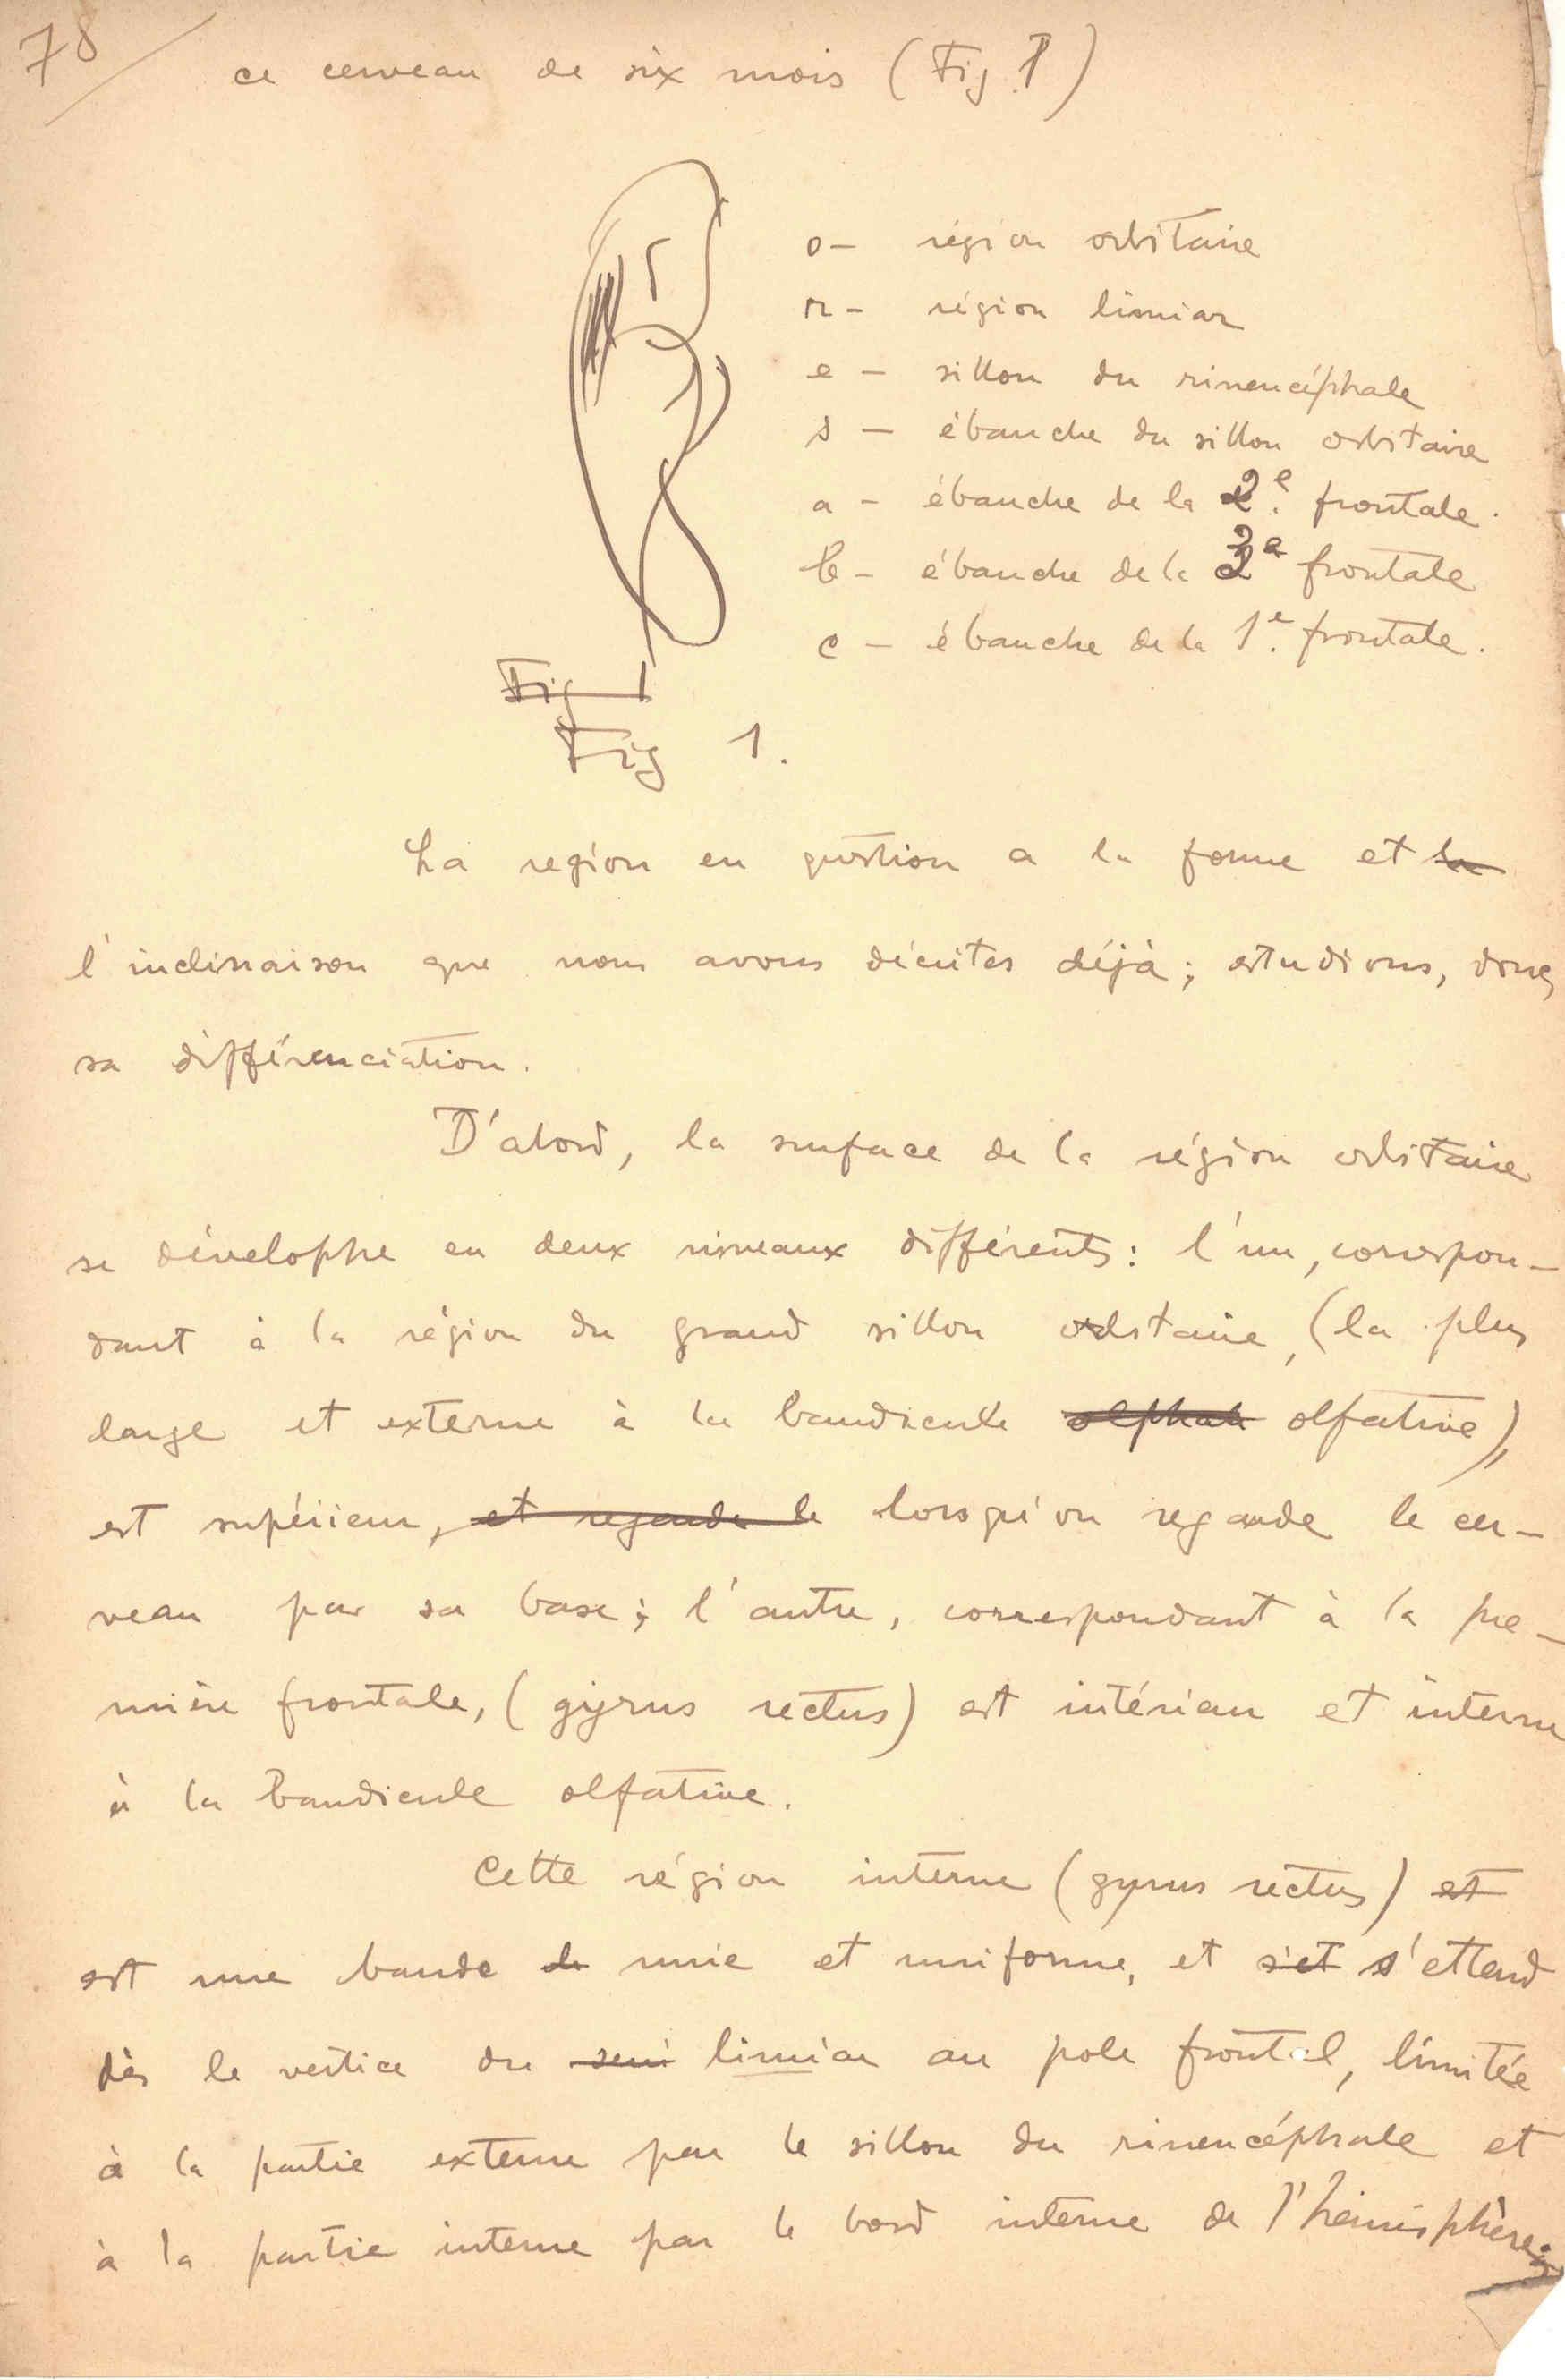 78
ce cerveau de six mois (Fig. 1)
o – région orbitaire
r – région limiar
e – sillon du rinencéphale
s – ébauche du sillon orbitaire
a – ébauche de la 2e. frontale.
b – ébauche de la 3e frontale
c – ébauche de la 1e. frontale.
Fig 1
Fig 1.
La region en question a la forme et la
l'inclinaison que nous avons décrites déjà; estudions, donc,
sa différenciation.
D'abord, la surface de la région orbitaire
se développe en deux niveaux différents: l'un, correspon–
dant à la région du grand sillon orbitaire, (la plus
large et externe à la bandicule olphat olfative),
est supérieur, et regarde le lorsqu'on regarde le cer–
veau par sa base; l'autre, correspondant à la pre–
mière frontale, (gyrus rectus) est intérieur et interne
à la bandicule olfative.
Cette région interne (gyrus rectus) et
est une bande de unie et uniforme, et s'et s'ettend
dès le vertice du limiar au pole frontal, limitée
à la partie externe par le sillon du rinencéphale et
à la partie interne par le bord interne de l'hémisphère;